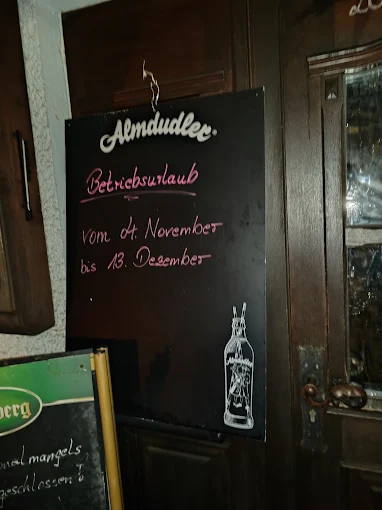 Almdudler
Betriebsurlaub
vom 04. November
bis 13. Dezember
Almdudler
berg
nalmangels,
geschlossen!